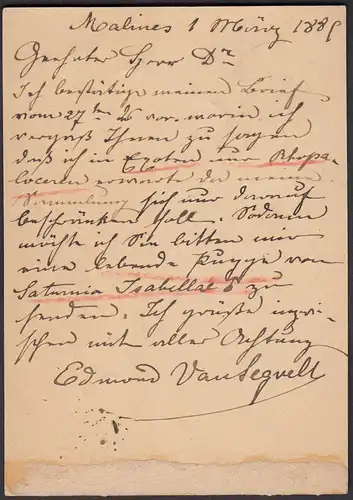 Malines 1 März 1885
Geehrter Herr Dr
Ich bestätige meinen Brief
vom 27ten vor. worin ich
vergaß Ihnen zu sagen
daß ich in Exoten nur Rhopa-
loceren erwarte da meine
Sammlung sich nur darauf
beschränken soll. Sodann
möchte ich Sie bitten mir
eine lebende Puppe von
Saturnia Isabellae zu
senden. Ich grüße inzwi-
schen mit aller Achtung
Edmond VanSegvelt